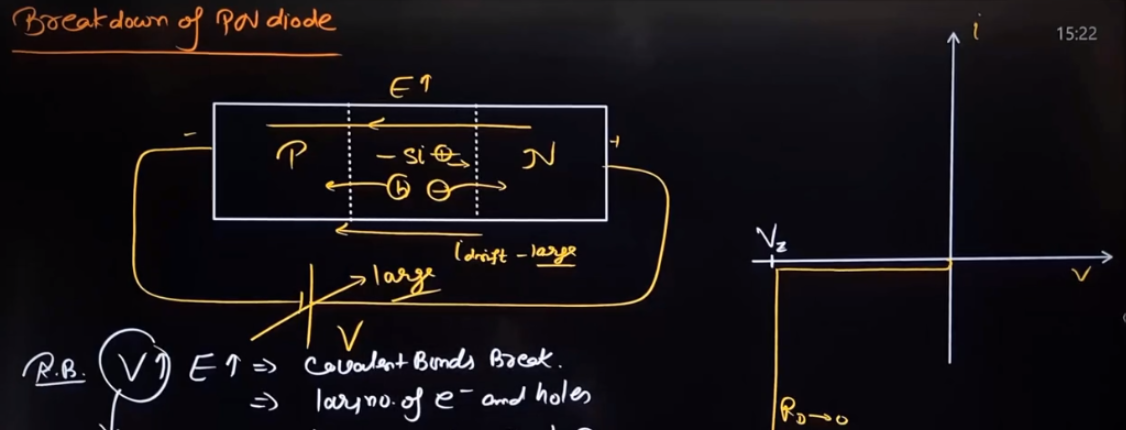 Breakdown of PN diode
i
15:22
E↑
-
+
P
- Si ⊕
N
h ⊖
i drift - large
large
V
Vz
V
R.B. V↑ E↑ ⇒ Covalent Bonds Break.
⇒ larg no. of e⁻ and holes
R_D→0